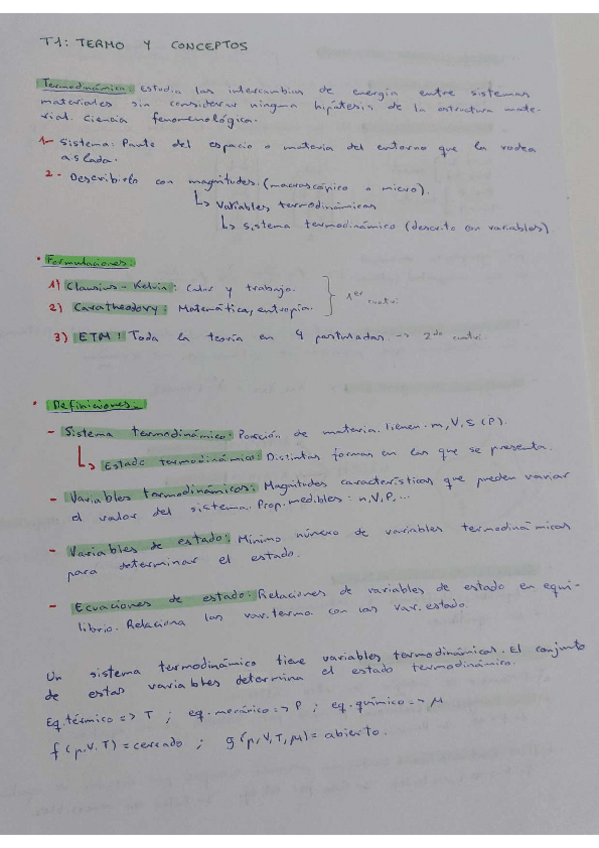 T1: TERMO Y CONCEPTOS
Termodinámica: Estudia los intercambios de energía entre sistemas
materiales sin considerar ninguna hipótesis de la estructura mate-
rial. Ciencia fenomenológica.
1- Sistema: Parte del espacio o materia del entorno que la rodea
aislada.
2- Describirlo con magnitudes. (macroscópico o micro).
↳ Variables termodinámicas
↳ sistema termodinámico (descrito con variables)
• Formulaciones:
1) Clausius-Kelvin: Calor y trabajo.
2) Caratheodory: Matemática, entropía.
1er cuatri
3) ETM: Toda la teoría en 4 postulados → 2do cuatri.
• Definiciones:
- Sistema termodinámico: Porción de materia. Tienen m, V, S (P).
↳ Estado termodinámico: Distintas formas en las que se presenta.
- Variables termodinámicas: Magnitudes características que pueden variar
el valor del sistema. Prop. medibles: n, V, P, ...
- Variables de estado: Mínimo número de variables termodinámicas
para determinar el estado.
- Ecuaciones de estado: Relaciones de variables de estado en equi-
librio. Relaciona las var. termo. con las var. estado.
Un sistema termodinámico tiene variables termodinámicas. El conjunto
de estas variables determina el estado termodinámico.
Eq. térmico => T ; eq. mecánico => P ; eq. químico => μ
f(p,V,T) = cerrado ; g(p,V,T,μ) = abierto.